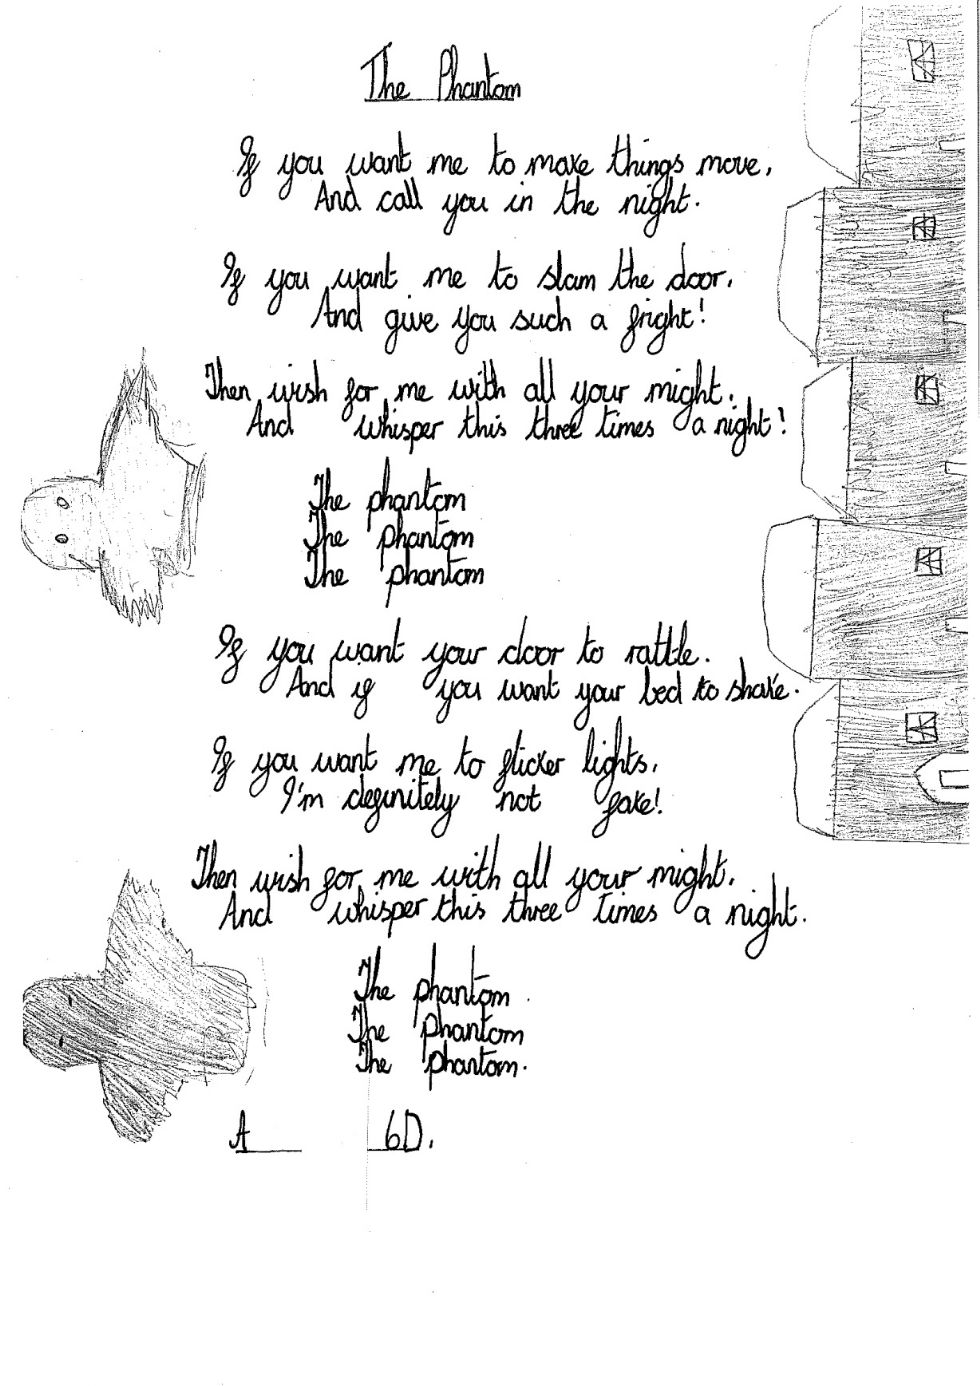 The Phantom
If you want me to make things move,
And call you in the night.
If you want me to slam the door,
And give you such a fright!
Then wish for me with all your might,
And whisper this three times a night!
The phantom
The phantom
The phantom
If you want your door to rattle.
And if you want your bed to shake.
If you want me to flicker lights,
I'm definitely not fake!
Then wish for me with all your might,
And whisper this three times a night.
The phantom.
The phantom
The phantom.
A 6D.